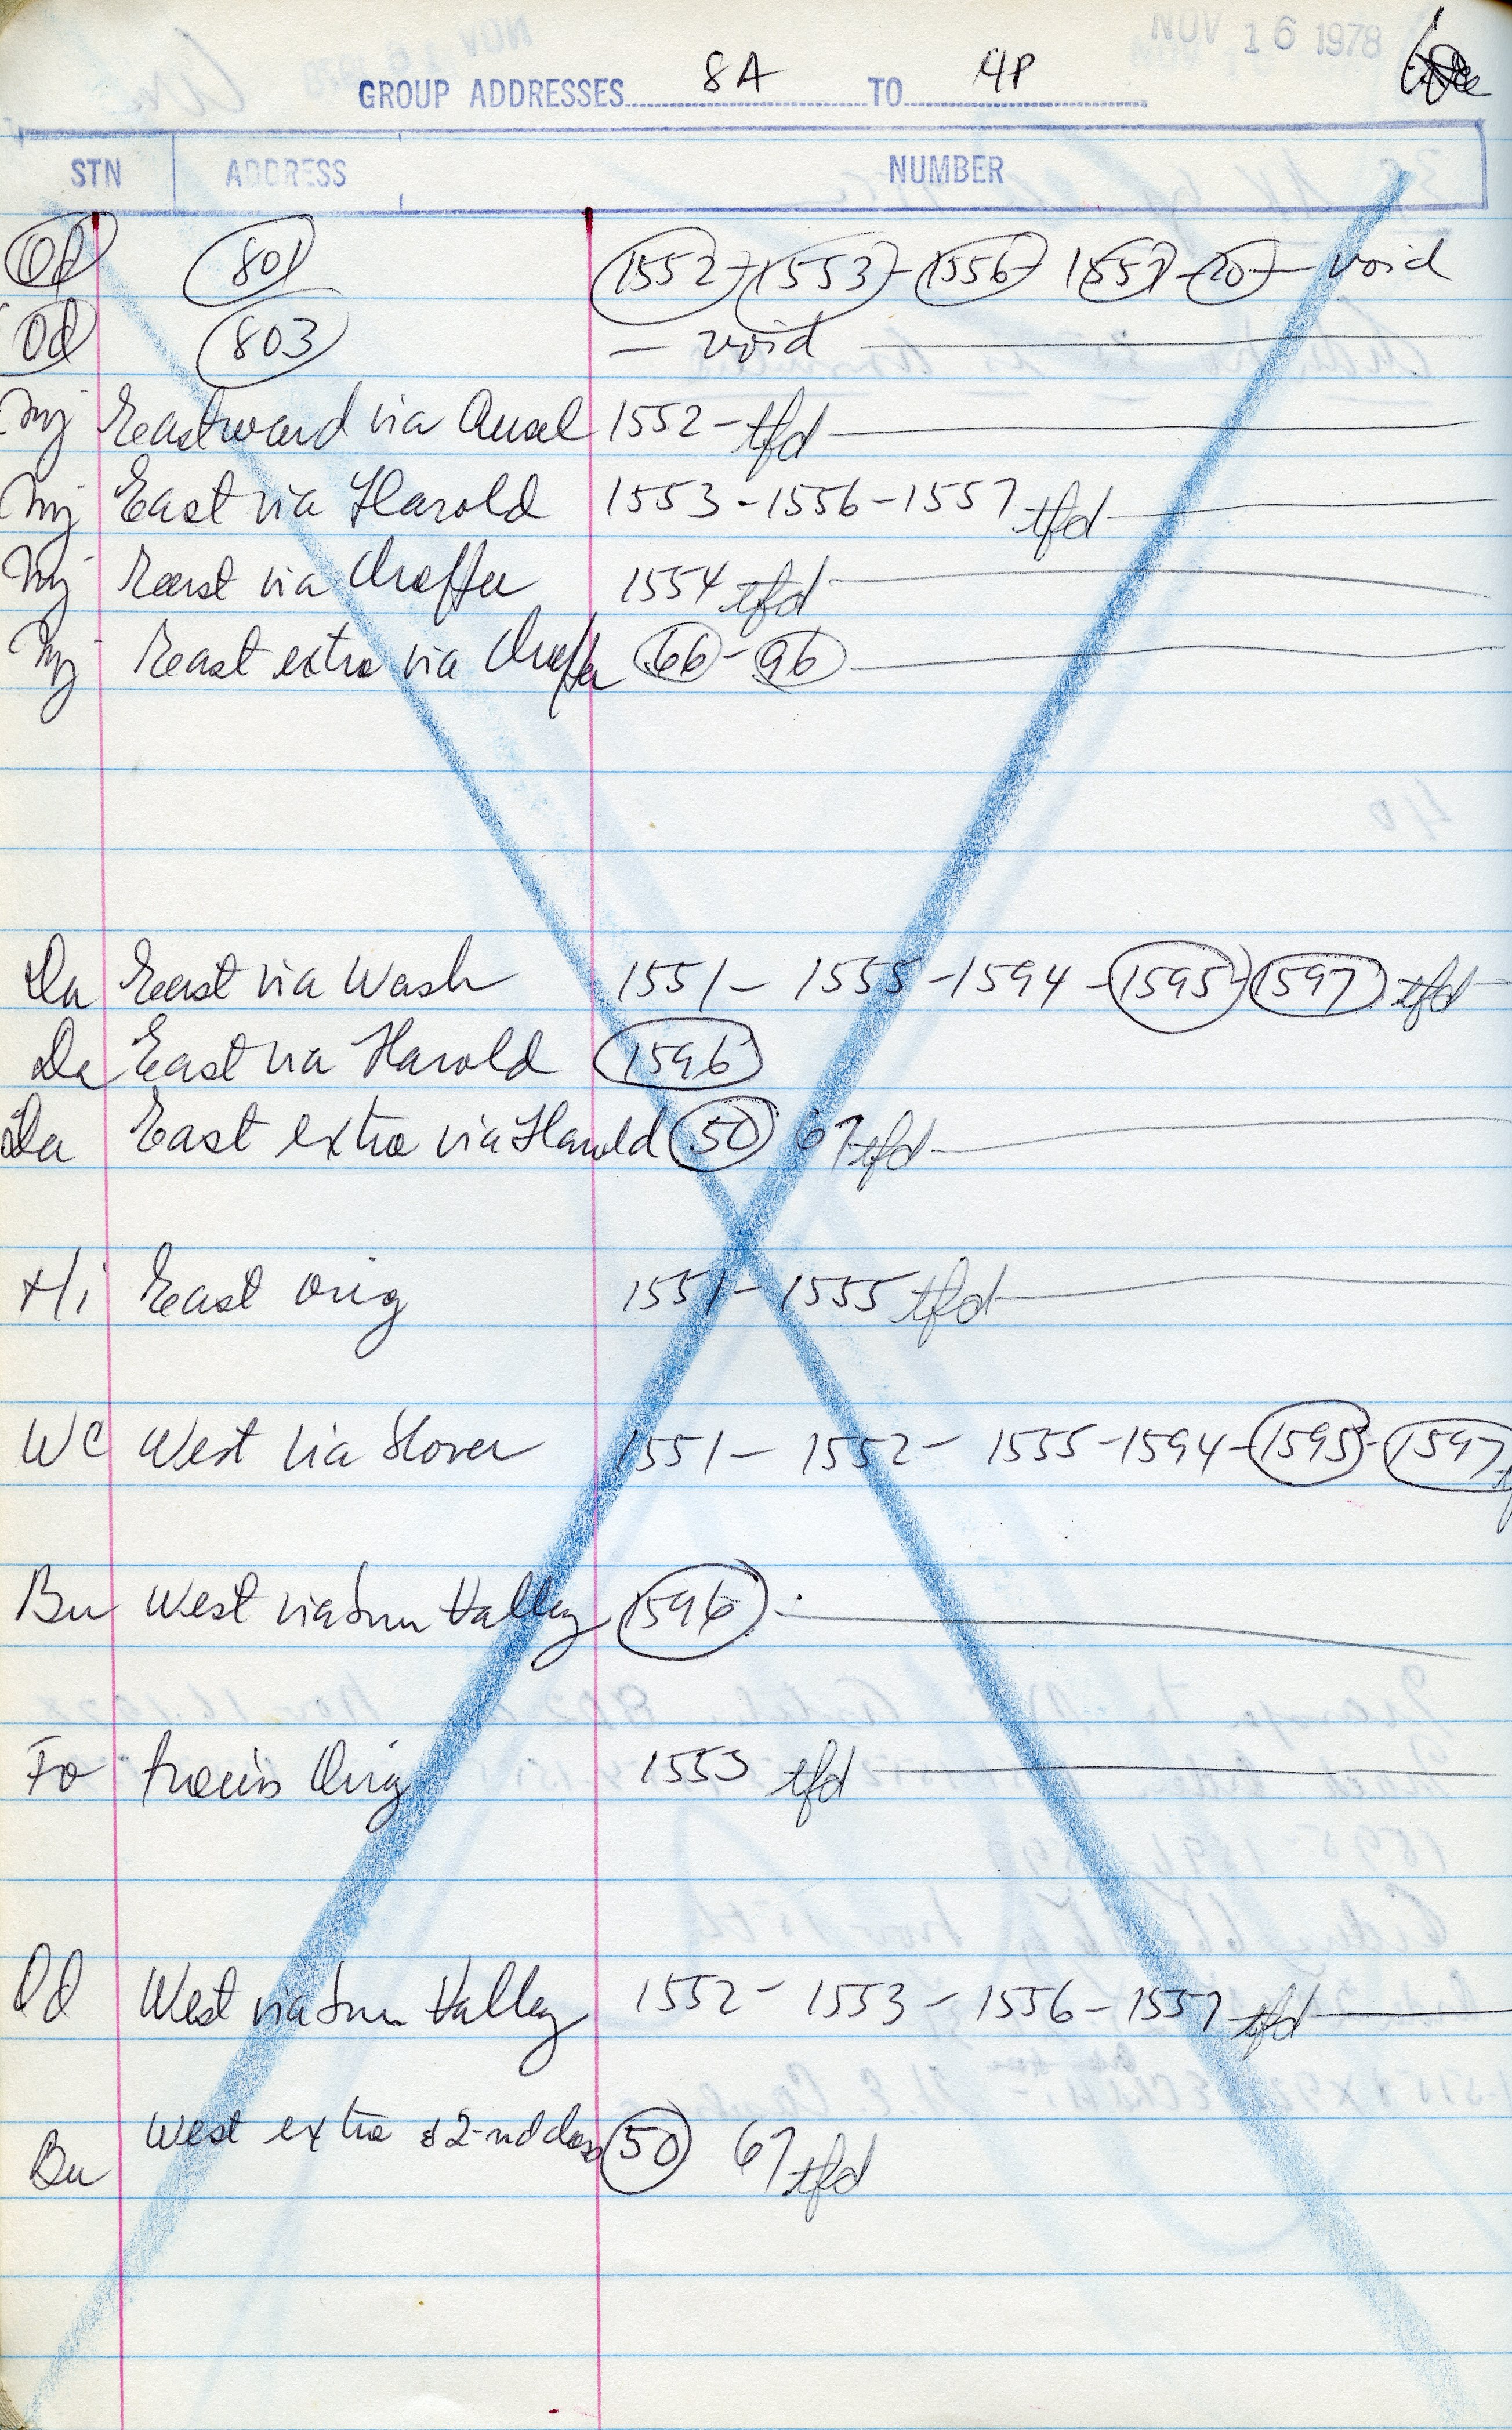 NOV 16 1978
GROUP ADDRESSES 8A TO 4P
STN ADDRESS NUMBER
Od 801 1552 - 1553 - 1556 - 1557 - 20 - void
Od 803 - void
Nj Eastward via 1552 - tfd
Nj East via Harold 1553 - 1556 - 1557 tfd
Nj East via 1554 tfd
Nj East extra via 66 - 96
Da East via Wash 1551 - 1555 - 1594 - 1595 - 1597 tfd
Da East via Harold 1596
Da East extra via Harold 50 67 tfd
Hi East orig 1551 - 1555 tfd
WC West via Slover 1551 - 1552 - 1555 - 1594 - 1595 - 1597
Bu West via Sun Valley 1596
Fo Orig 1553 tfd
Od West via Sun Valley 1552 - 1553 - 1556 - 1557 tfd
West extra 50 67 tfd
Bu